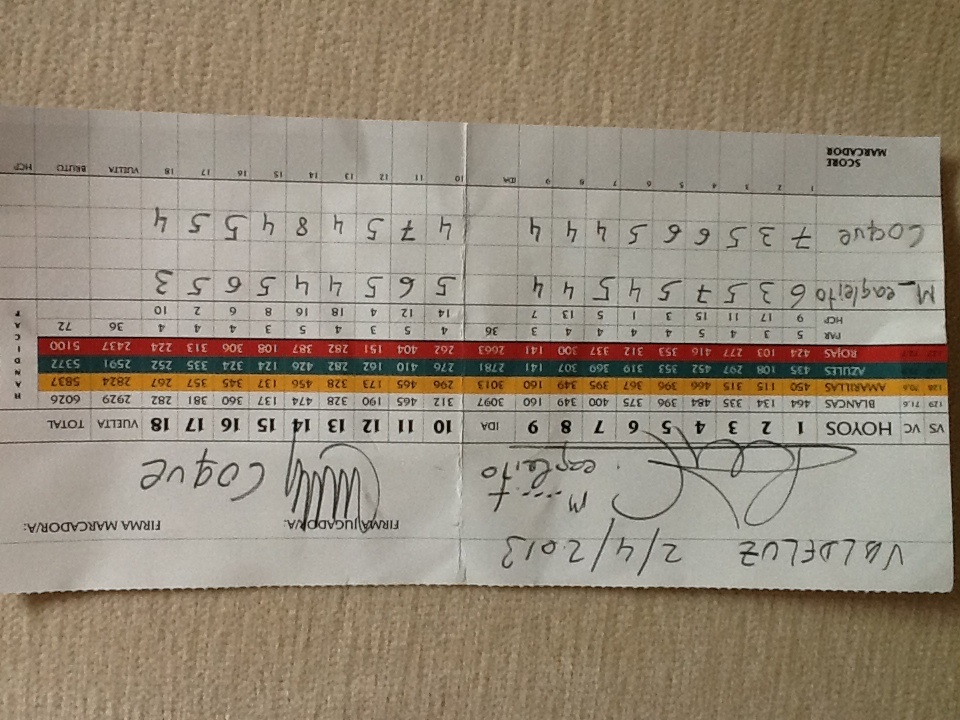 VALDELUZ 2/4/2013
FIRMA JUGADOR/A: FIRMA MARCADOR/A:
M eagleito Coque
VS VC HOYOS 1 2 3 4 5 6 7 8 9 IDA 10 11 12 13 14 15 16 17 18 VUELTA TOTAL
129 71.6 BLANCAS 464 134 335 484 396 375 400 349 160 3097 312 465 190 328 474 137 360 381 282 2929 6026
AMARILLAS 450 115 315 466 396 367 395 349 160 3013 296 465 173 328 456 137 345 357 267 2824 5837
AZULES 435 108 297 452 353 319 369 307 141 2781 276 410 162 282 426 124 324 335 252 2591 5372
ROJAS 424 103 277 416 353 312 337 300 141 2663 262 404 151 282 387 108 306 313 224 2437 5100
PAR 5 3 4 5 4 4 4 4 3 36 4 5 3 4 5 3 4 4 4 36 72
HCP 9 17 11 15 3 1 5 13 7 14 12 4 18 16 8 6 2 10
HANDICAP
M_eagleito 6 3 5 7 5 4 5 4 4 5 6 5 4 4 5 6 5 3
Coque 7 3 5 6 6 5 4 4 4 4 7 5 4 8 4 5 5 4
1 2 3 4 5 6 7 8 9 IDA 10 11 12 13 14 15 16 17 18 VUELTA BRUTO HCP
SCORE
MARCADOR